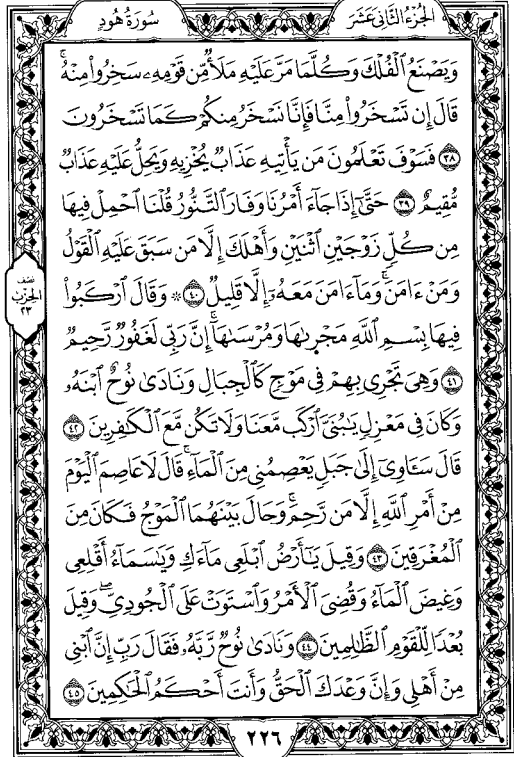 الجزء الثاني عشر
سورة هود
وَيَصْنَعُ ٱلْفُلْكَ وَكُلَّمَا مَرَّ عَلَيْهِ مَلَأٌ مِّن قَوْمِهِۦ سَخِرُوا۟ مِنْهُ ۚ
قَالَ إِن تَسْخَرُوا۟ مِنَّا فَإِنَّا نَسْخَرُ مِنكُمْ كَمَا تَسْخَرُونَ
٣٨ فَسَوْفَ تَعْلَمُونَ مَن يَأْتِيهِ عَذَابٌ يُخْزِيهِ وَيَحِلُّ عَلَيْهِ عَذَابٌ
مُّقِيمٌ ٣٩ حَتَّىٰٓ إِذَا جَآءَ أَمْرُنَا وَفَارَ ٱلتَّنُّورُ قُلْنَا ٱحْمِلْ فِيهَا
مِن كُلٍّ زَوْجَيْنِ ٱثْنَيْنِ وَأَهْلَكَ إِلَّا مَن سَبَقَ عَلَيْهِ ٱلْقَوْلُ
وَمَنْ ءَامَنَ ۚ وَمَآ ءَامَنَ مَعَهُۥٓ إِلَّا قَلِيلٌ ٤٠ ۞ وَقَالَ ٱرْكَبُوا۟
فِيهَا بِسْمِ ٱللَّهِ مَجْر۪ىٰهَا وَمُرْسَىٰهَآ ۚ إِنَّ رَبِّى لَغَفُورٌ رَّحِيمٌ
٤١ وَهِىَ تَجْرِى بِهِمْ فِى مَوْجٍ كَٱلْجِبَالِ وَنَادَىٰ نُوحٌ ٱبْنَهُۥ
وَكَانَ فِى مَعْزِلٍ يَٰبُنَىَّ ٱرْكَب مَّعَنَا وَلَا تَكُن مَّعَ ٱلْكَٰفِرِينَ ٤٢
قَالَ سَـَٔاوِىٓ إِلَىٰ جَبَلٍ يَعْصِمُنِى مِنَ ٱلْمَآءِ ۚ قَالَ لَا عَاصِمَ ٱلْيَوْمَ
مِنْ أَمْرِ ٱللَّهِ إِلَّا مَن رَّحِمَ ۚ وَحَالَ بَيْنَهُمَا ٱلْمَوْجُ فَكَانَ مِنَ
ٱلْمُغْرَقِينَ ٤٣ وَقِيلَ يَٰٓأَرْضُ ٱبْلَعِى مَآءَكِ وَيَٰسَمَآءُ أَقْلِعِى
وَغِيضَ ٱلْمَآءُ وَقُضِىَ ٱلْأَمْرُ وَٱسْتَوَتْ عَلَى ٱلْجُودِىِّ ۖ وَقِيلَ
بُعْدًا لِّلْقَوْمِ ٱلظَّٰلِمِينَ ٤٤ وَنَادَىٰ نُوحٌ رَّبَّهُۥ فَقَالَ رَبِّ إِنَّ ٱبْنِى
مِنْ أَهْلِى وَإِنَّ وَعْدَكَ ٱلْحَقُّ وَأَنتَ أَحْكَمُ ٱلْحَٰكِمِينَ ٤٥
نصف
الحزب
٢٣
٢٢٦